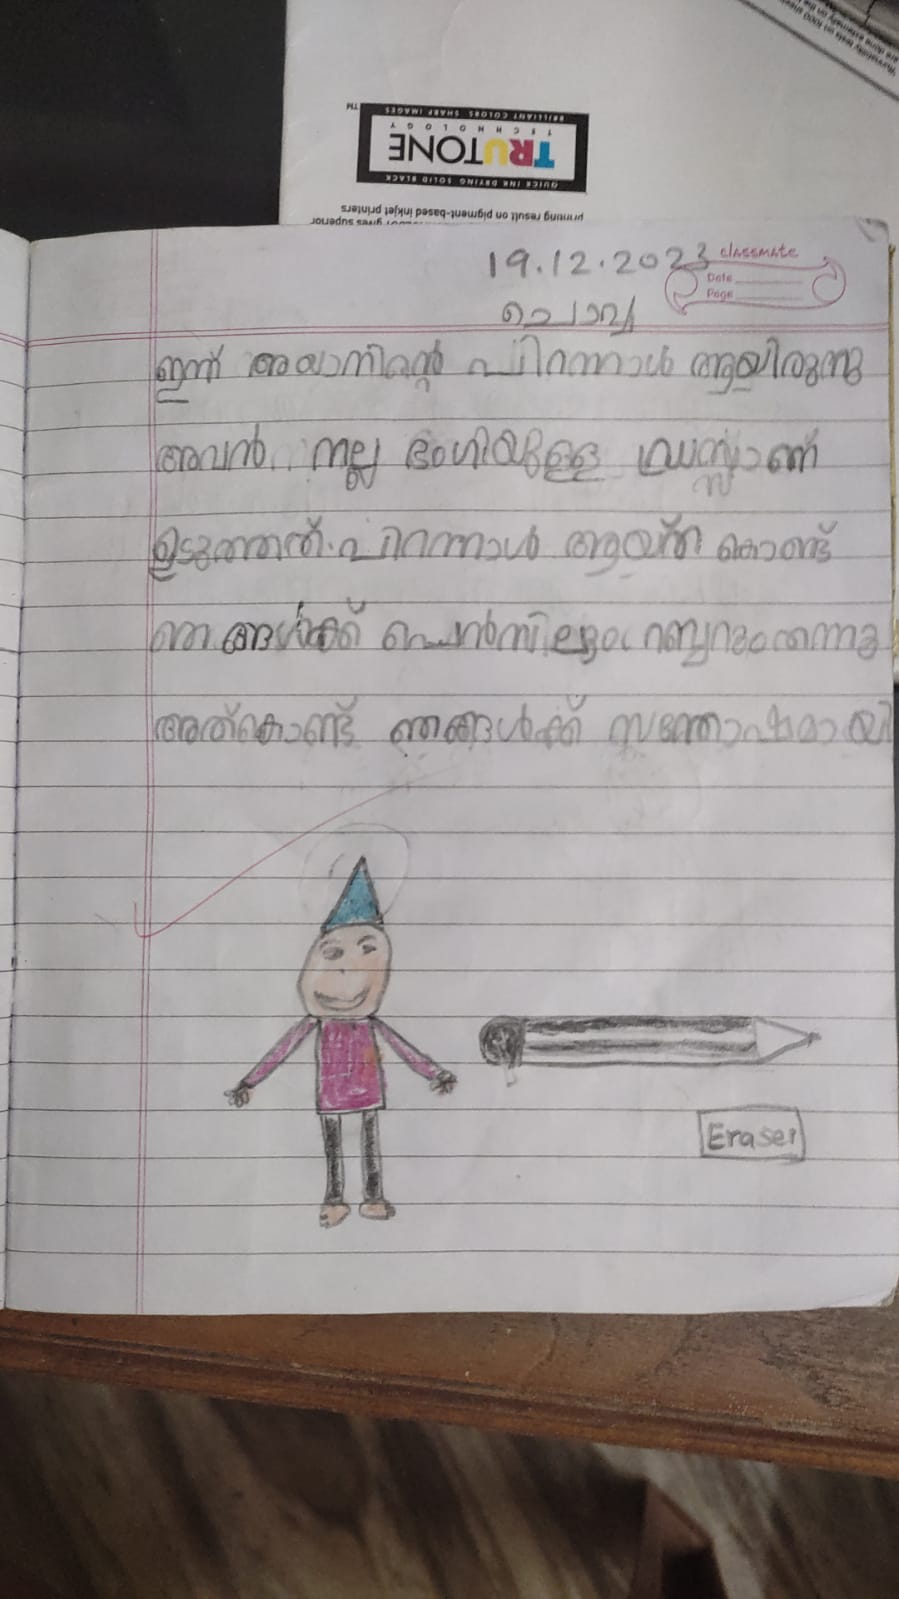 QUICK INK DRYING SOLID BLACK
TRUTONE
TECHNOLOGY
BRILLIANT COLORS SHARP IMAGES
TM
printing result on pigment-based inkjet printers
gives superior
19.12.2023
classmate
Date
Page
ചൊവ്വ
ഇന്ന് അയാനിന്റെ പിറന്നാൾ ആയിരുന്നു
അവൻ നല്ല ഭംഗിയുള്ള ഡ്രസ്സാണ്
ഉടുത്തത്. പിറന്നാൾ ആയത് കൊണ്ട്
ഞങ്ങൾക്ക് പെൻസിലും റബ്ബറും തന്നു
അത്കൊണ്ട് ഞങ്ങൾക്ക് സന്തോഷമായി
Eraser